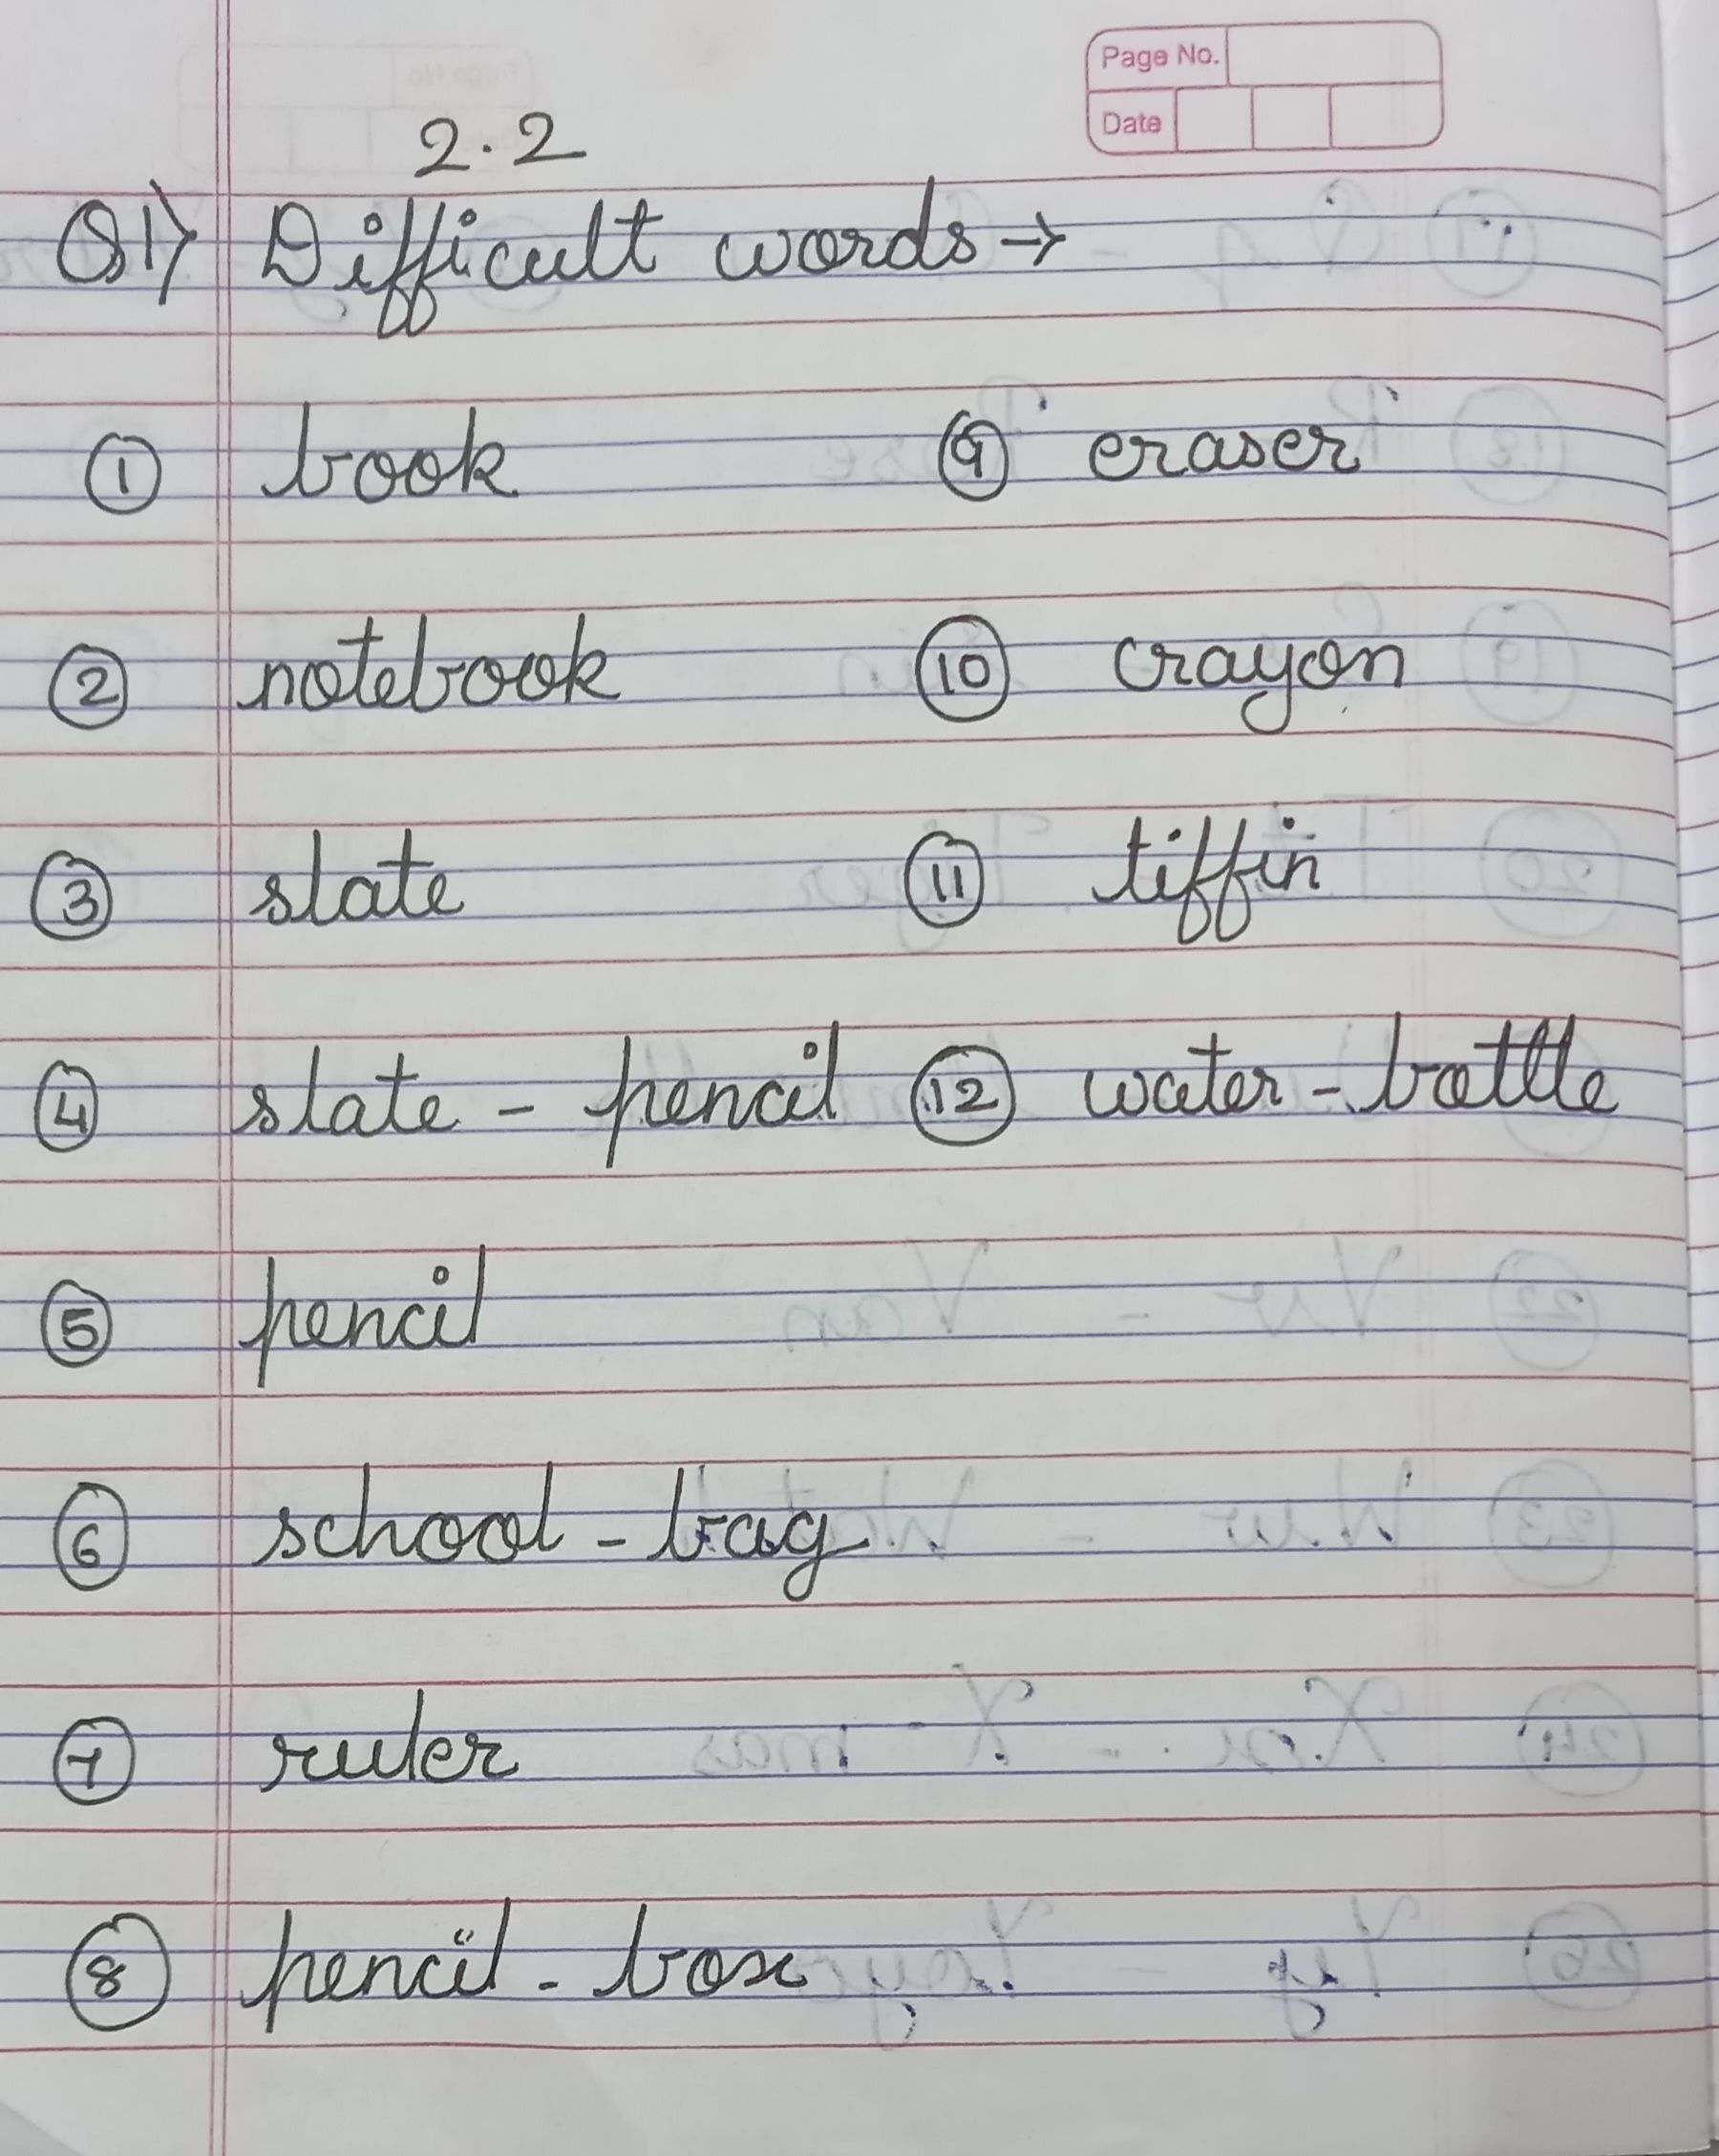 Page No.
Date
2.2
Q1) Difficult words →
1 book
2 notebook
3 slate
4 slate - pencil
5 pencil
6 school - bag
7 ruler
8 pencil - box
9 eraser
10 crayon
11 tiffin
12 water - bottle